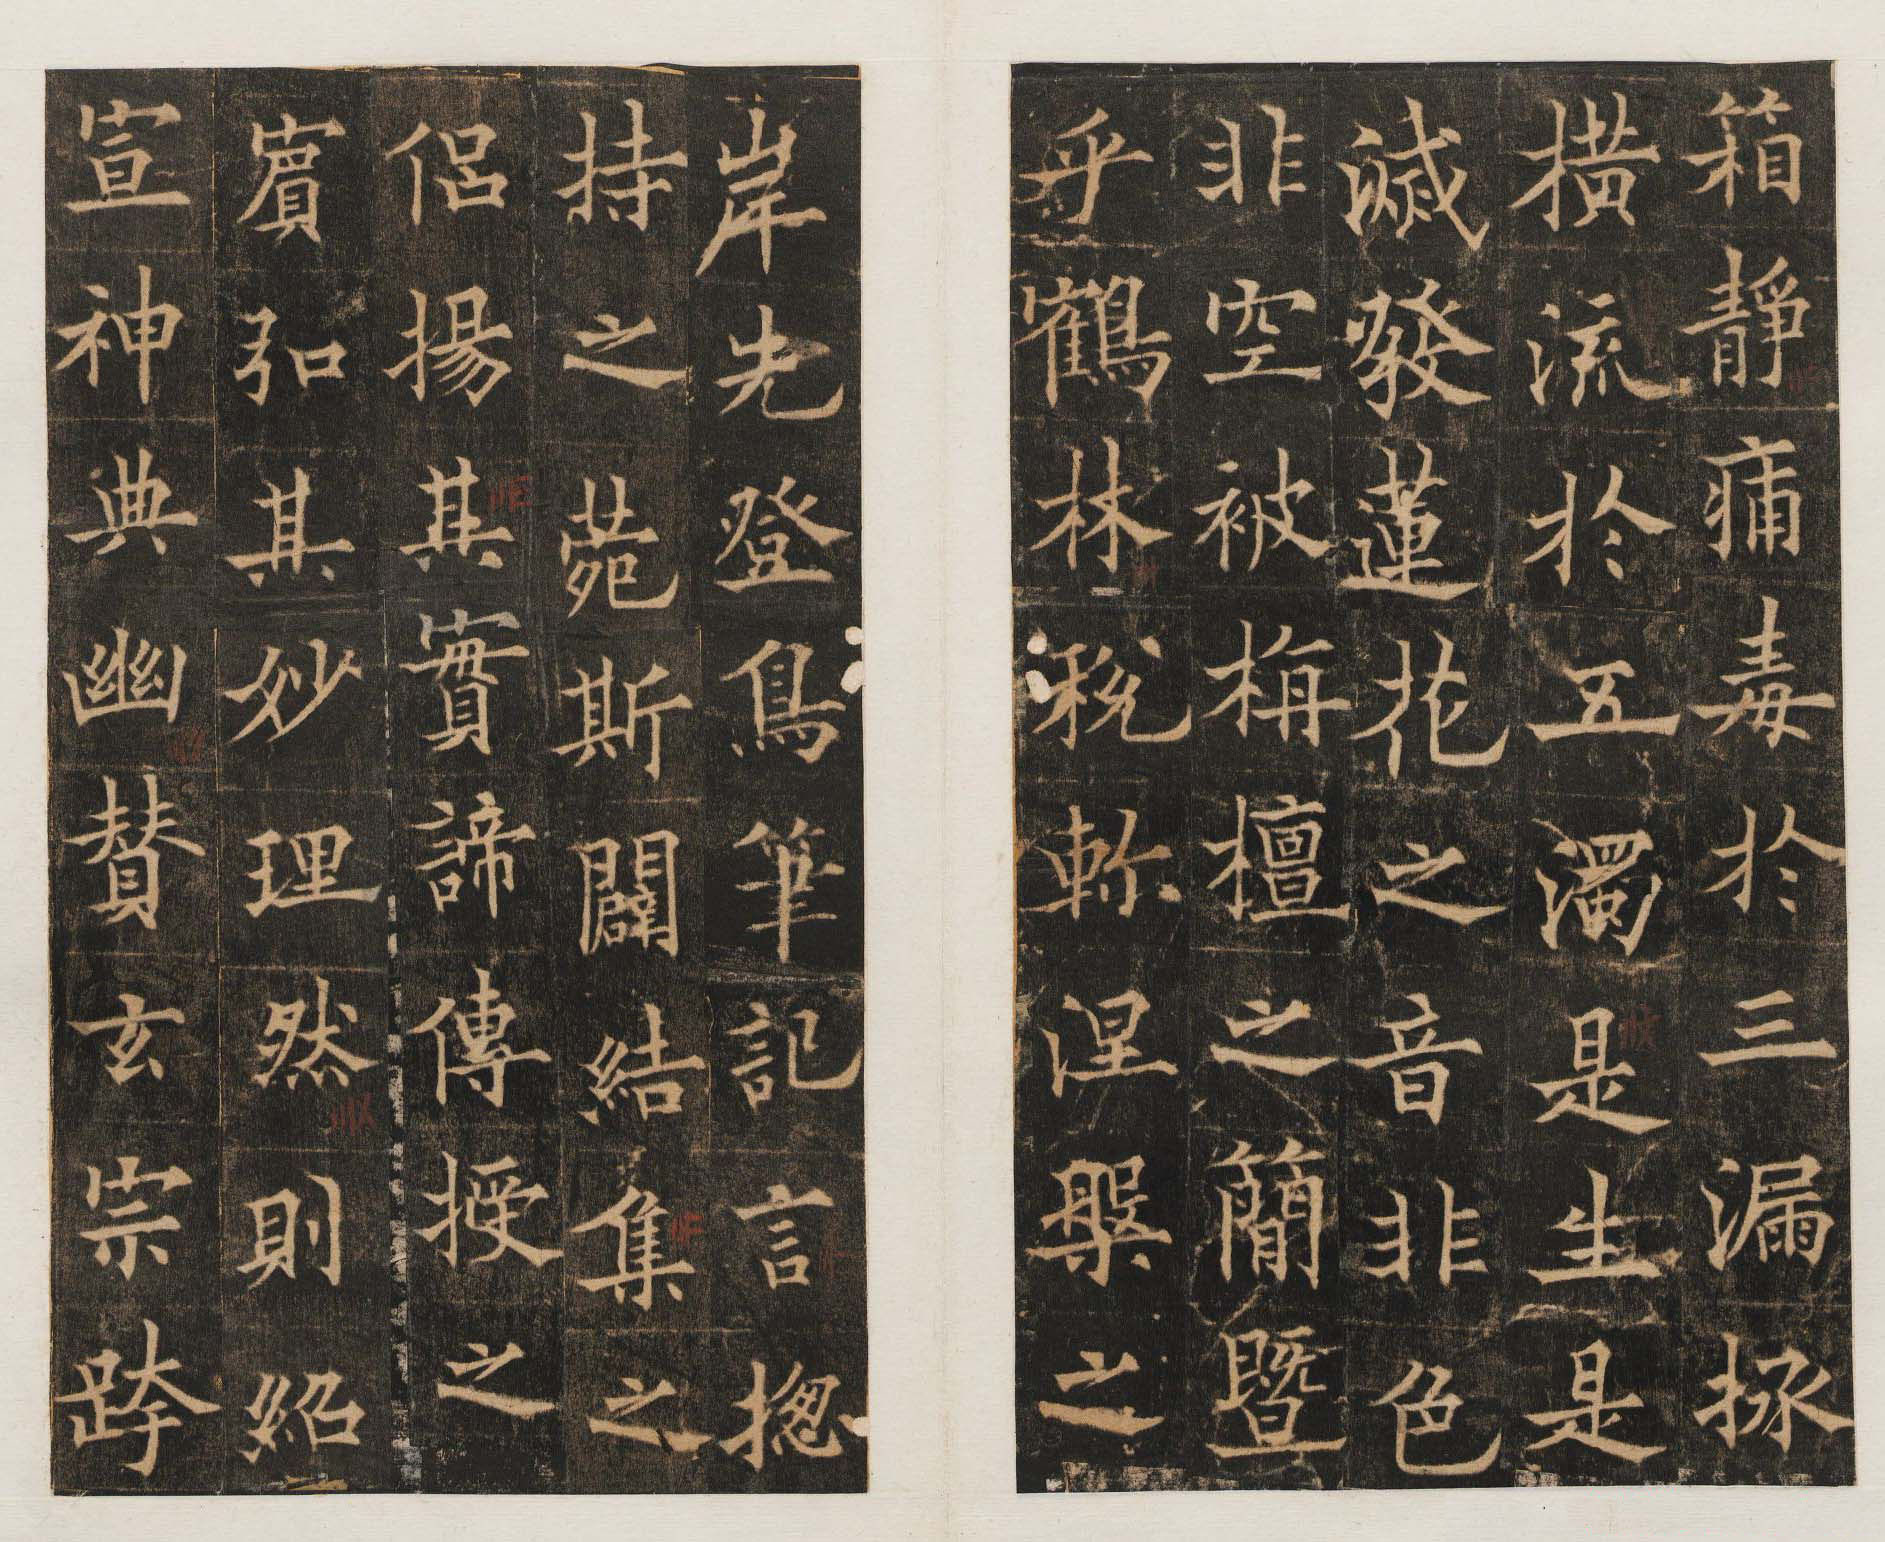 箱靜痛毒於三漏拯
撗流於五濁是生是
滅發蓮花之音非色
非空被栴檀之簡暨
乎鶴林稅軫涅槃之
岸先登鳥筆記言揔
持之菀斯闢結集之
侶揚其實諦傳授之
賓弘其妙理然則紹
宣神典幽贊玄宗跨